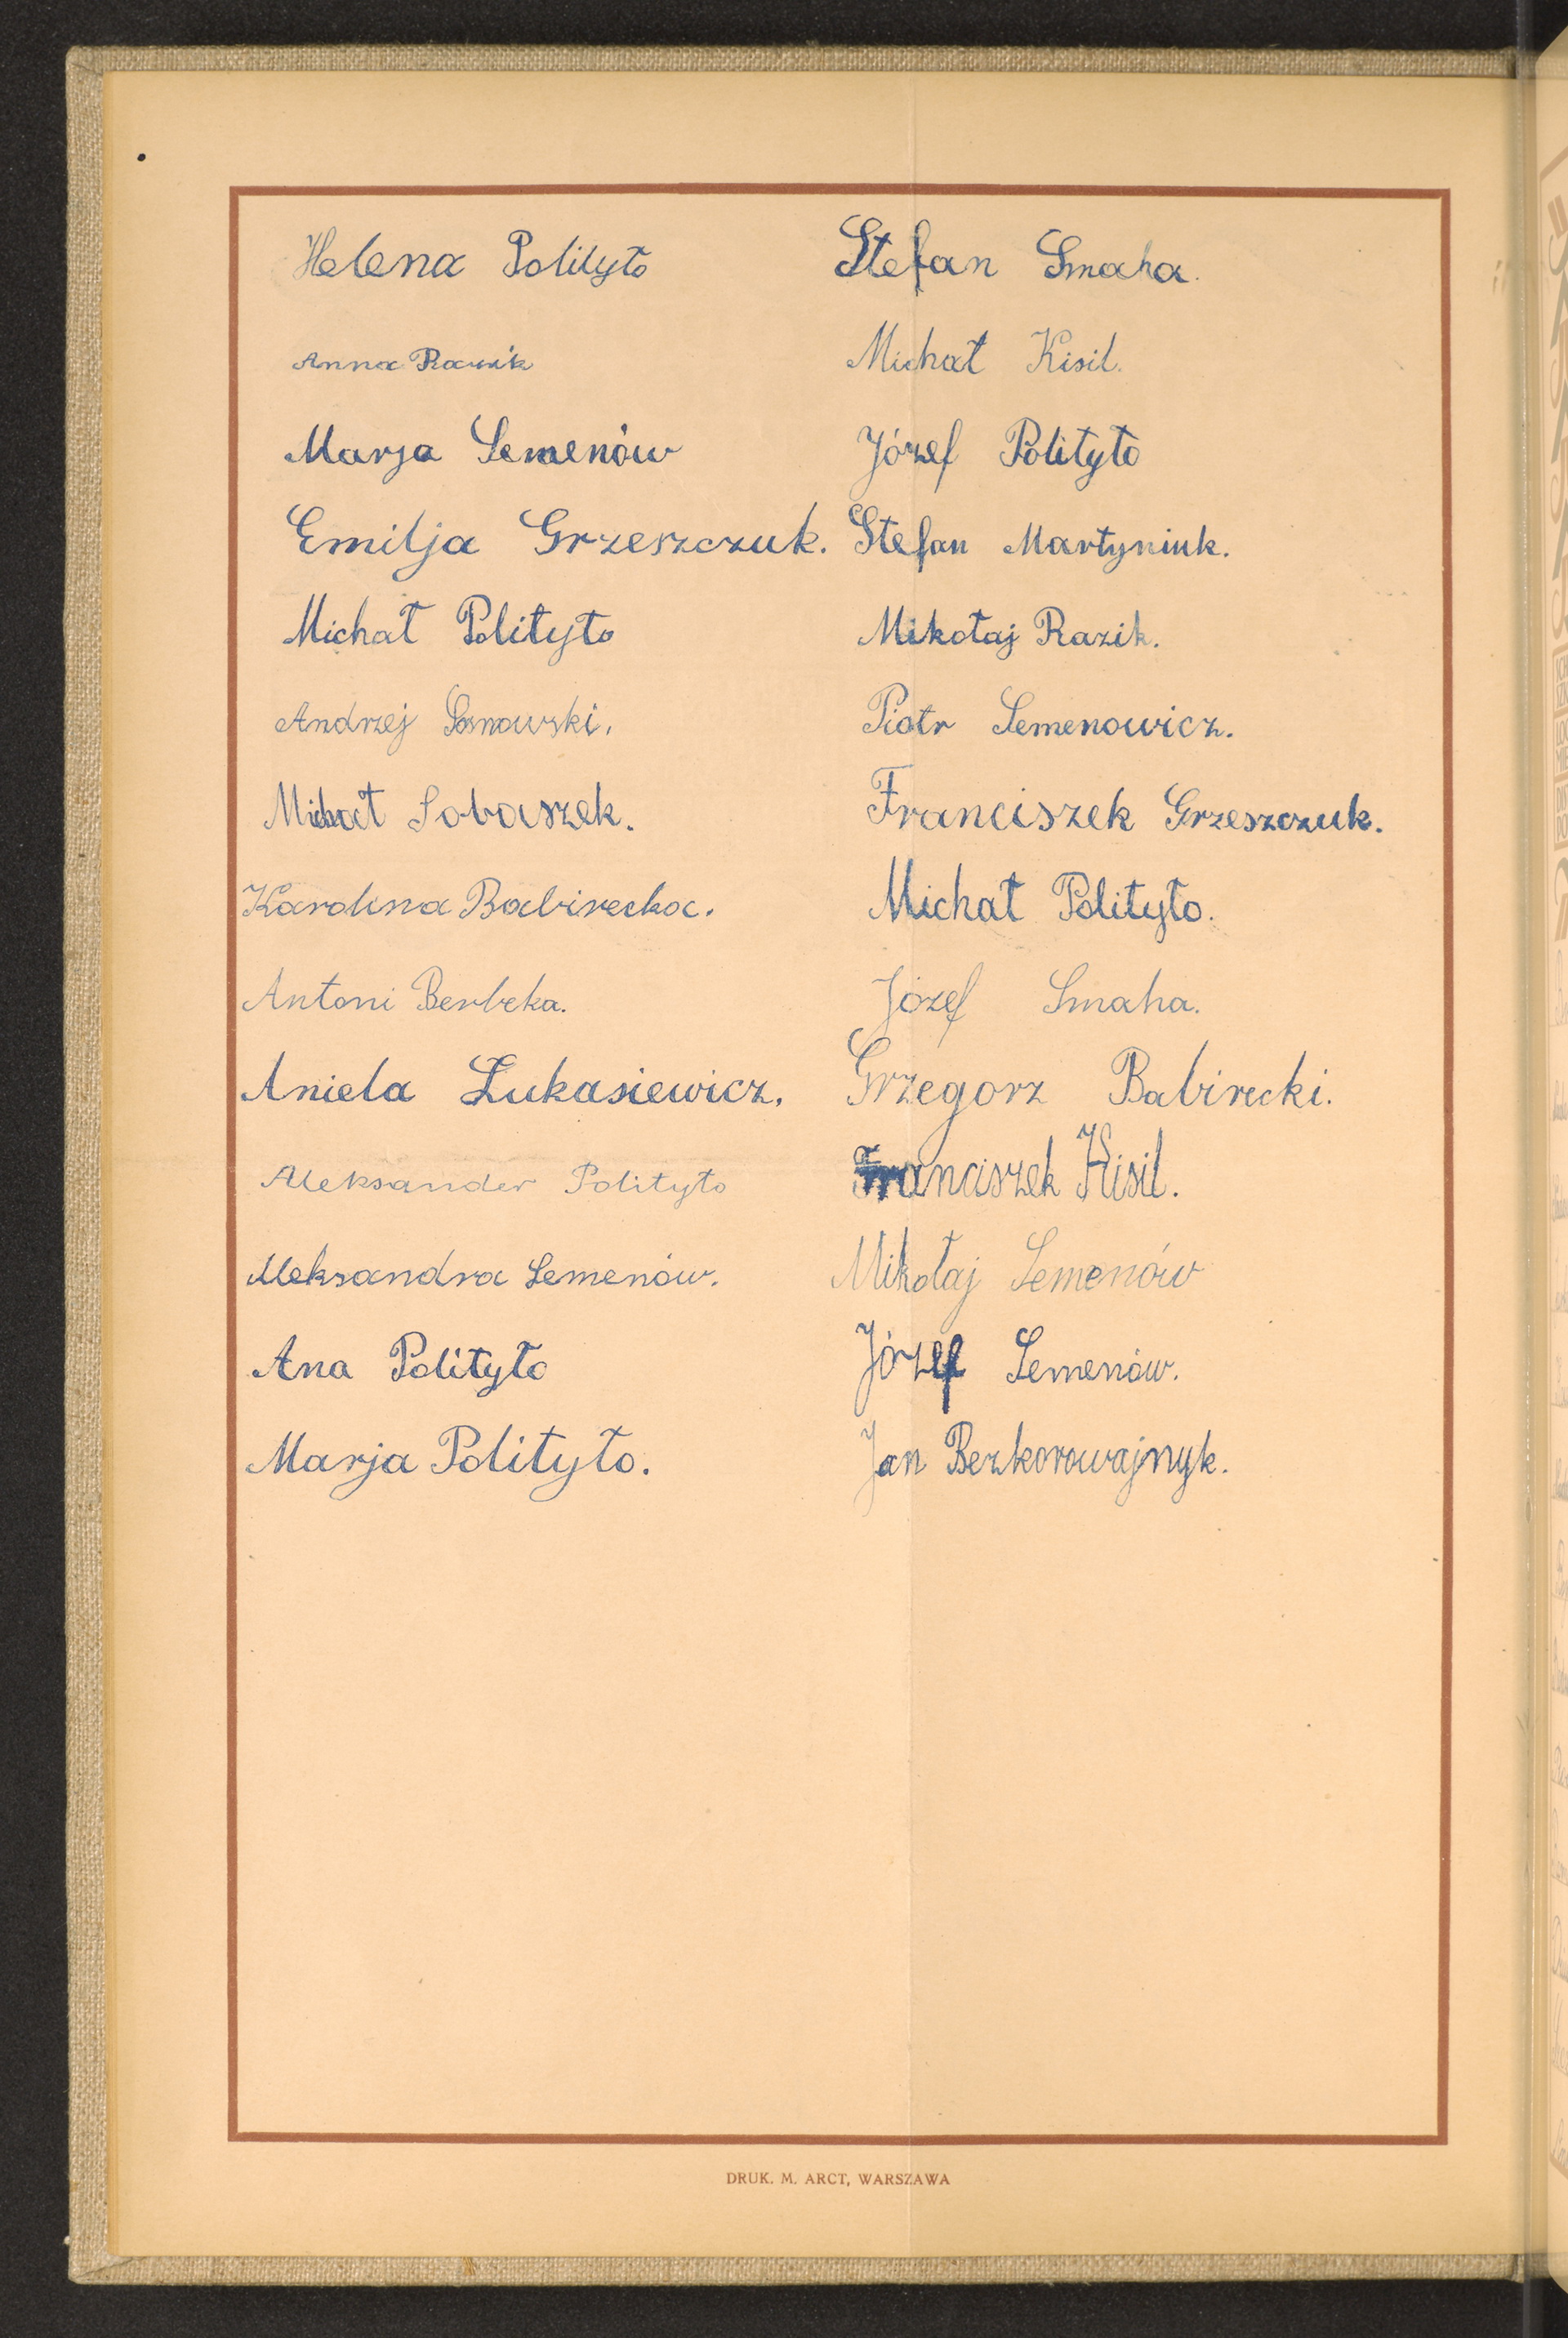 Helena Polityło
Anna Razik
Marja Semenów
Emilja Grzeszczuk.
Michał Polityło
Andrzej Sosnowski.
Michał Sobaszek.
Karolina Babirecka.
Antoni Berbeka.
Aniela Łukasiewicz.
Aleksander Polityło
Aleksandra Semenów.
Ana Polityło
Marja Polityło.
Stefan Smaha.
Michał Kisil.
Józef Polityło
Stefan Martyniuk.
Mikołaj Razik.
Piotr Semenowicz.
Franciszek Grzeszczuk.
Michał Polityło.
Józef Smaha.
Grzegorz Babirecki.
Franciszek Kisil.
Mikołaj Semenów
Józef Semenów.
Jan Bezkorowajnyk.
DRUK. M. ARCT, WARSZAWA